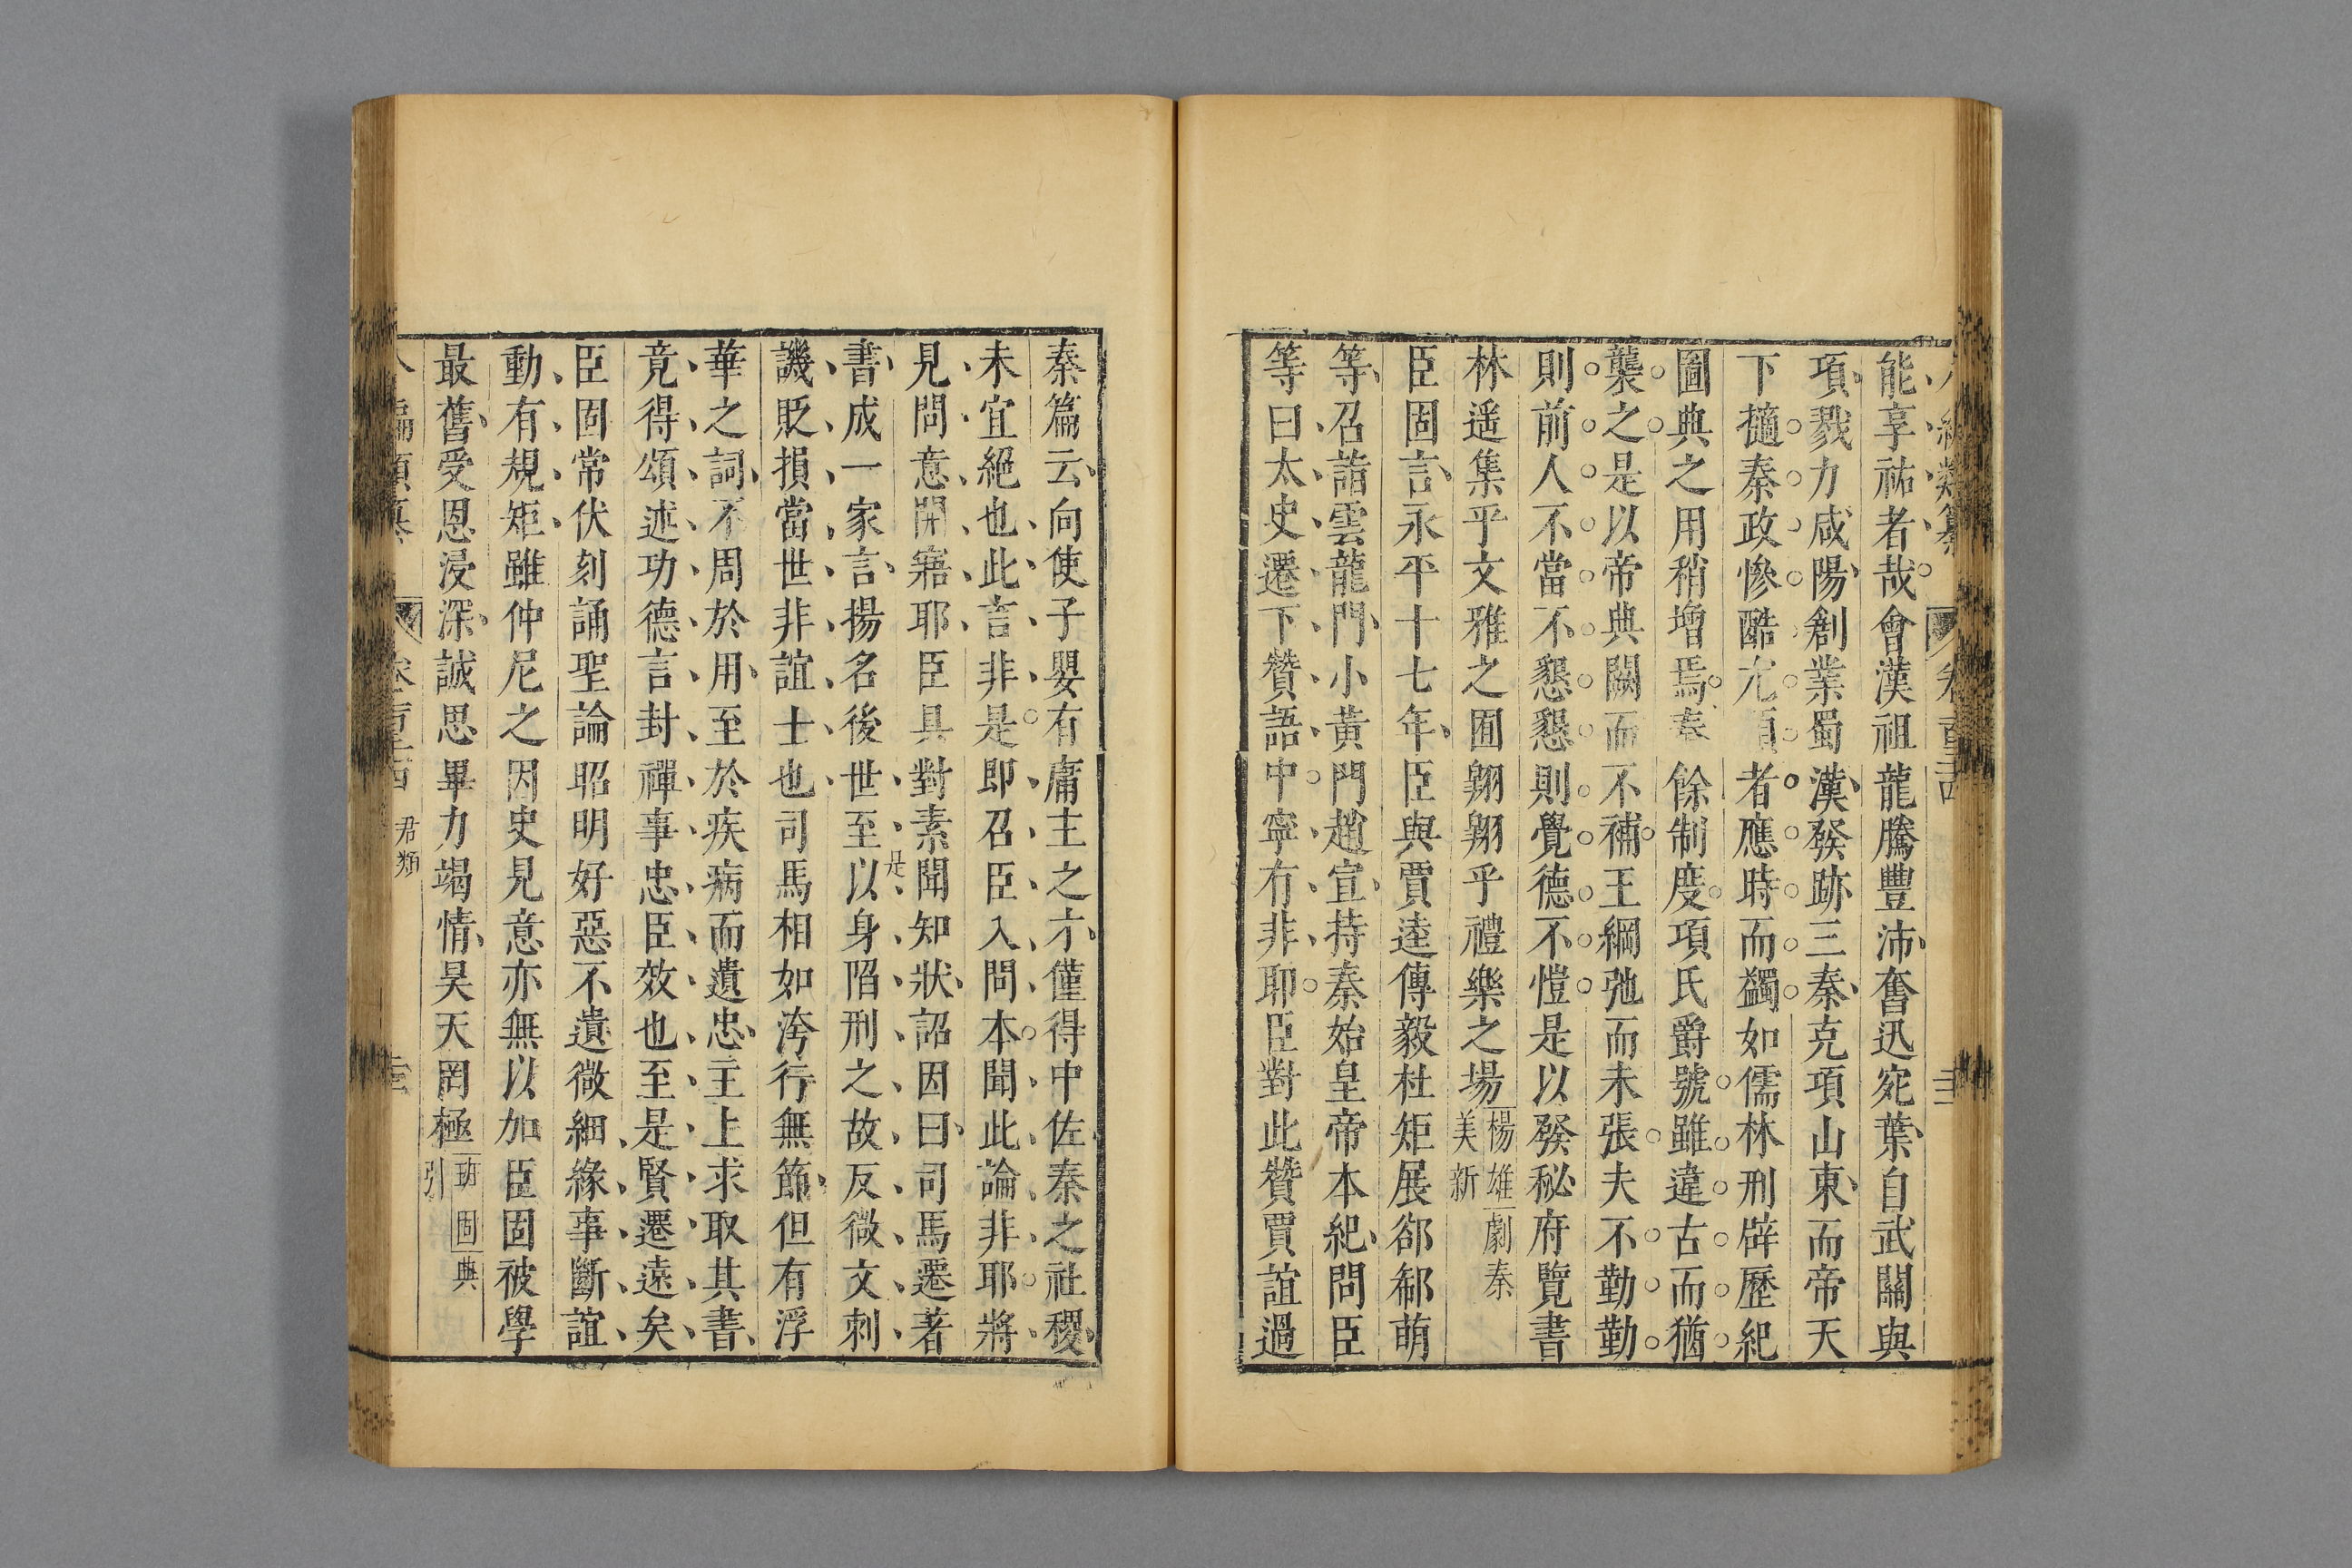 能享祐者哉會漢祖龍騰豐沛奮迅宛葉自武關與
項戮力咸陽創業蜀漢發跡三秦克項山東而帝天
下擿秦政慘酷尤煩者應時而蠲如儒林刑辟歷紀
圖典之用稍增焉秦餘制度項氏爵號雖違古而猶
襲之是以帝典闕而不補王綱弛而未張夫不勤勤
則前人不當不懇懇則覺德不愷是以發秘府覽書
林遥集乎文雅之囿翱翱乎禮樂之場楊雄劇秦美新
臣固言永平十七年臣與賈逵傳毅杜矩展郤郗萌
等召詣雲龍門小黃門趙宣持秦始皇帝本紀問臣
等曰太史遷下贊語中寧有非耶臣對此贊賈誼過
秦篇云向使子嬰有庸主之才僅得中佐秦之社稷
未宜絕也此言非是即召臣入問本聞此論非耶將
見問意開寤耶臣具對素聞知狀詔因曰司馬遷著
書成一家言揚名後世至是以身陷刑之故反微文刺
譏貶損當世非誼士也司馬相如洿行無節但有浮
華之詞不周於用至於疾病而遺忠主上求取其書
竟得頌述功德言封禪事忠臣效也至是賢遷遠矣
臣固常伏刻誦聖論昭明好惡不遺微細緣事斷誼
動有規矩雖仲尼之因史見意亦無以加臣固被學
最舊受恩浸深誠思畢力竭情昊天罔極班固典引
君類